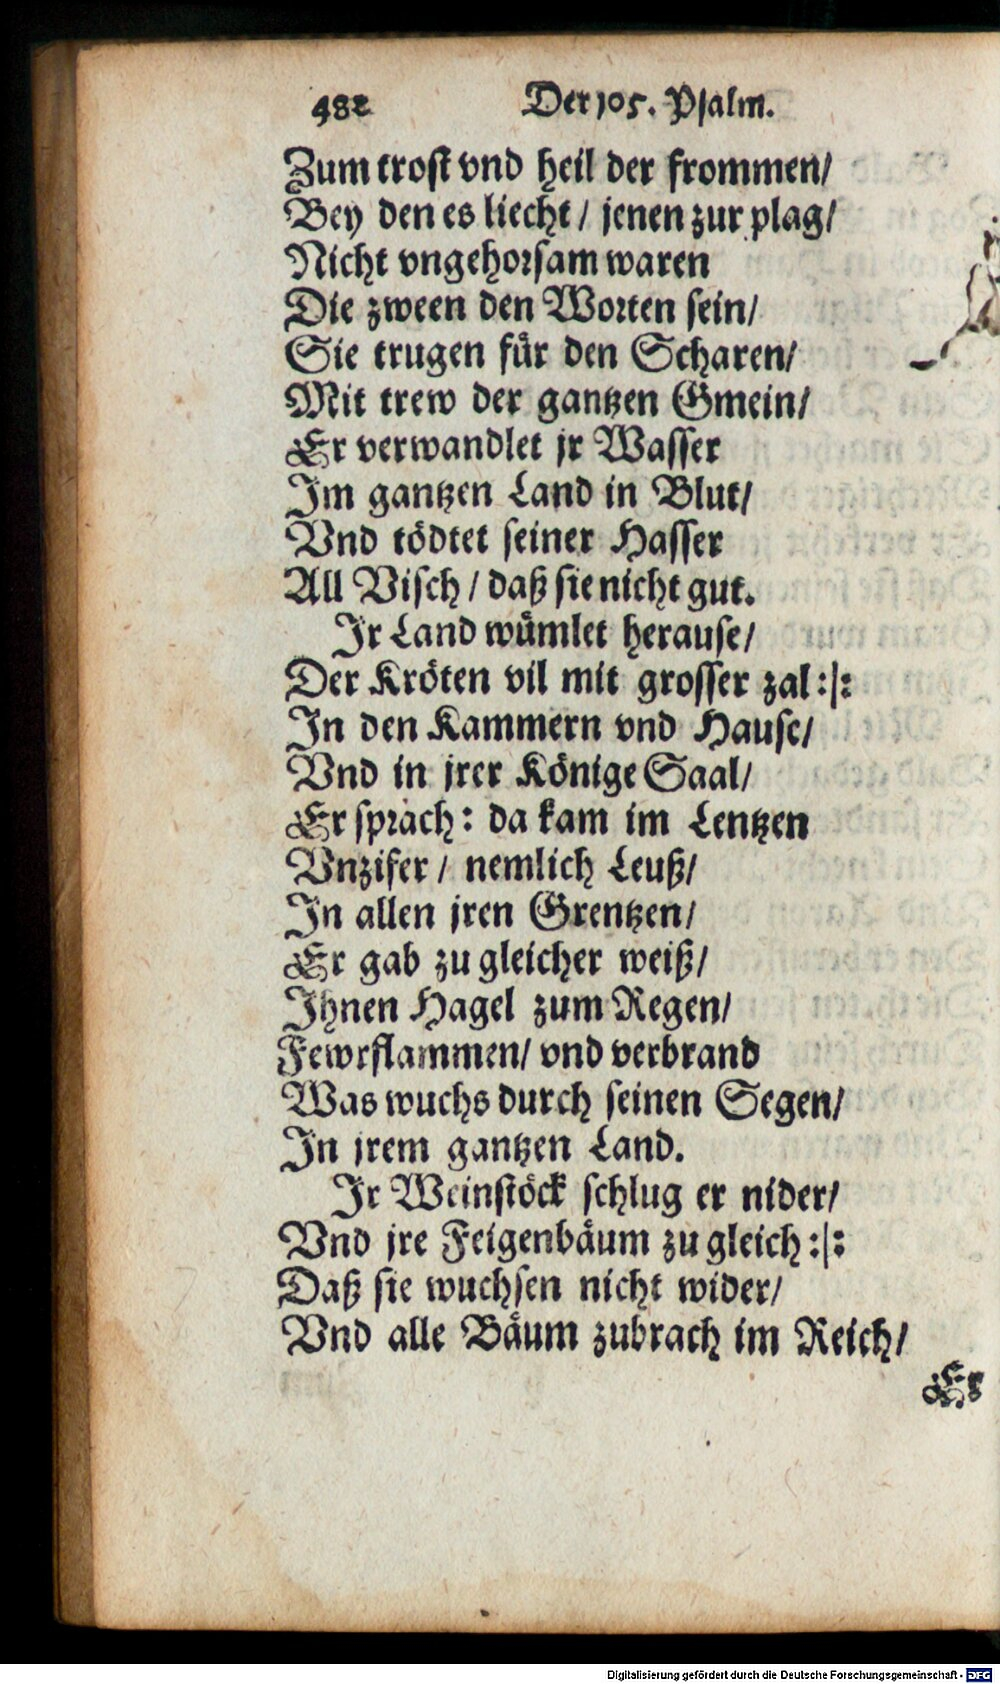 482 Der 105. Psalm.
Zum trost vnd heil der frommen/
Bey den es liecht / jenen zur plag/
Nicht vngehorsam waren
Die zween den Worten sein/
Sie trugen für den Scharen/
Mit trew der gantzen Gmein/
Er verwandlet jr Wasser
Im gantzen Land in Blut/
Vnd tödtet seiner Hasser
All Visch / daß sie nicht gut.
Ir Land wümlet herause/
Der Kröten vil mit grosser zal :|:
In den Kammern vnd Hause/
Vnd in jrer Könige Saal/
Er sprach: da kam im Lentzen
Vnzifer / nemlich Leuß/
In allen jren Grentzen/
Er gab zu gleicher weiß/
Ihnen Hagel zum Regen/
Fewrflammen/ vnd verbrand
Was wuchs durch seinen Segen/
In jrem gantzen Land.
Ir Weinstöck schlug er nider/
Vnd jre Feigenbäum zu gleich :|:
Daß sie wuchsen nicht wider/
Vnd alle Bäum zubrach im Reich/
Er
Digitalisierung gefördert durch die Deutsche Forschungsgemeinschaft - DFG